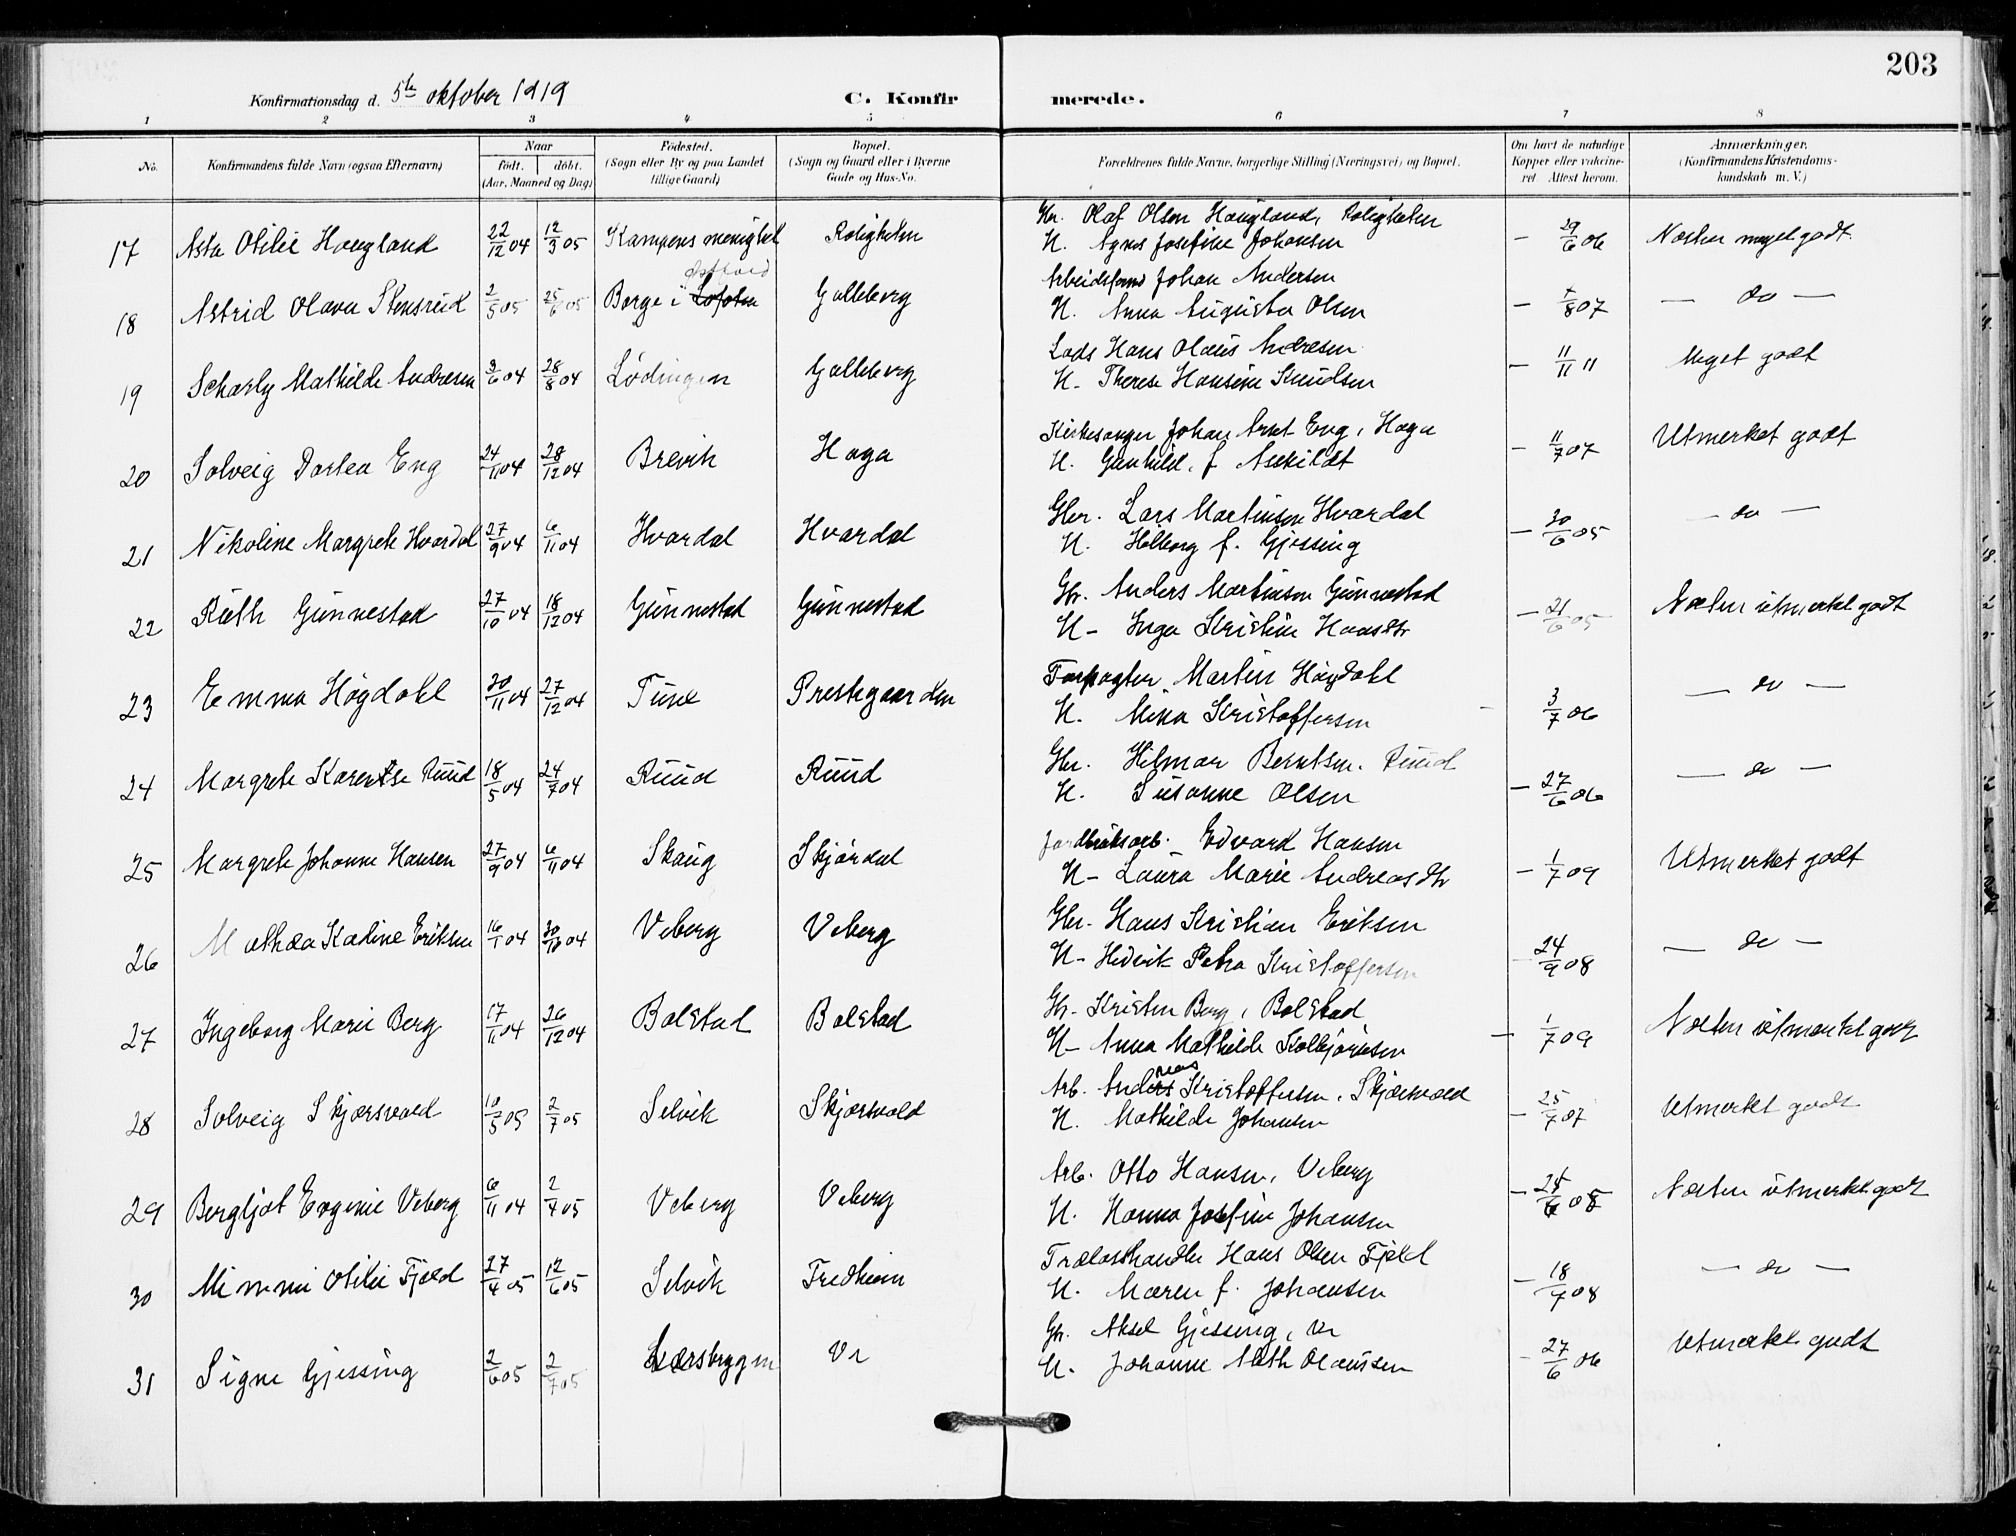 203
Konfirmationsdag d. 5te oktober 1919 C. Konfirmerede.
1 2 3 4 5 6 7 8
No. Konfirmandens fulde Navn (ogsaa Efternavn) Naar født. døbt. (Aar, Maaned og Dag) Fødested. (Sogn eller By og paa Landet tillige Gaard) Bopæl. (Sogn og Gaard eller i Byerne Gade og Hus-No. Forældrenes fulde Navne, borgerlige Stilling (Næringsvei) og Bopæl. Om havt de naturlige Kopper eller vaccineret. Attest herom. Anmærkninger. (Konfirmandens Kristendomskundskab m. V.)
17 Asta Otilie Haugland 22/12 04 12/3 05 Kampens menighet Roligheten Gbr. Olaf Olsen Haugland, Roligheten - 29/6 06 Næsten meget godt
H. Agnes Josefine Johansen
18 Astrid Olava Stensrud 2/5 05 25/6 05 Borge i Lofoten Østfold Galleberg Arbeidsform Johan Andersen - 7/8 07 - do -
H. Anna Augusta Olsen
19 Scharly Mathilde Andresen 3/6 04 28/8 04 Lødingen Galleberg Lods Hans Olaus Andresen - 11/11 11 Meget godt
H. Therese Hansine Knudsen
20 Solveig Dortea Eng 24/11 04 28/12 04 Brevik Haga Kirkesanger Johan Arnt Eng, Haga - 11/7 07 Utmerket godt
H. Gunhild, f. Askildt
21 Nikoline Margrete Hvardal 27/9 04 6/11 04 Hvardal Hvardal Gbr. Lars Martinsen Hvardal - 30/6 05 - do -
H. Helborg f. Gjessing
22 Ruth Gunnestad 27/10 04 18/12 04 Gunnestad Gunnestad Gbr. Anders Martinsen Gunnestad - 21/6 05 Næsten utmerket godt
H - Inga Kristine Hansdtr
23 Emma Høgdahl 30/11 04 27/12 04 Tune Prestegaarden Forpagter Martin Høgdahl - 3/7 06 - do -
H. Mina Kristoffersen
24 Margrete Karentse Ruud 18/5 04 24/7 04 Ruud Ruud Gbr. Hilmar Berntsen. Ruud - 27/6 06 - do -
H. Susanne Olsen
25 Margrete Johanne Hansen 27/9 04 6/11 04 Skaug Skjørdal Jordbruksarb. Edvard Hansen - 1/7 09 Utmerket godt
H - Laura Marie Andreasdtr
26 Mathea Kadine Eriksen 16/1 04 30/10 04 Veberg Veberg Gbr. Hans Kristian Eriksen - 24/9 08 - do -
H - Hedvik Petra Kristoffersen
27 Ingeborg Marie Berg 17/11 04 26/12 04 Bolstad Bolstad Gbr. Kristen Berg, Bolstad - 1/7 09 Næsten utmerket godt
H - Anna Mathilde Kolbjørnsen
28 Solveig Skjærsvold 10/5 05 2/7 05 Selvik Skjærsvold Arb. Andreas Kristoffersen. Skjærsvold - 25/7 07 Utmerket godt
H. Mathilde Johansen
29 Bergljot Evgenie Veberg 6/11 04 2/4 05 Veberg Veberg Arb. Otto Hansen, Veberg - 24/6 08 Næsten utmerket godt
H. Hanna Josefine Johansen
30 Mimmi Otilie Fjeld 27/4 05 12/6 05 Selvik Fredheim Trælasthandler Hans Olsen Fjeld - 18/7 08 - do -
H. Maren f. Johansen
31 Signe Gjessing 2/6 05 2/7 05 Lersbryggen Ve Gbr. Aksel Gjessing, Ve - 27/6 06 Utmerket godt
H. Johanne Math Olaussen